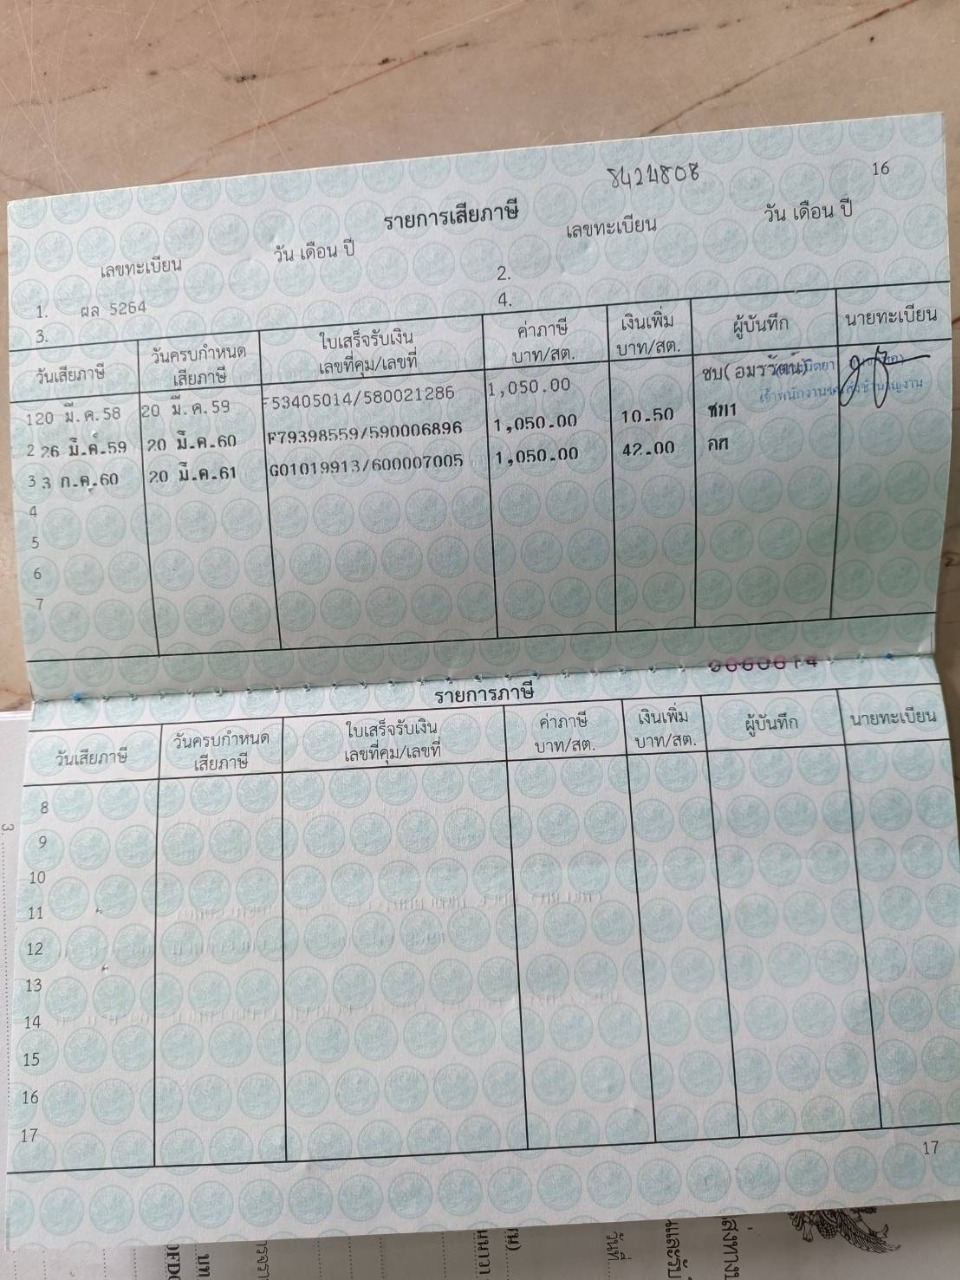 8424808
16
รายการเสียภาษี
เลขทะเบียน วัน เดือน ปี เลขทะเบียน วัน เดือน ปี
1. ผล 5264 2.
3. 4.
วันเสียภาษี วันครบกำหนดเสียภาษี ใบเสร็จรับเงิน เลขที่คุม/เลขที่ ค่าภาษี บาท/สต. เงินเพิ่ม บาท/สต. ผู้บันทึก นายทะเบียน
1 20 มี.ค.58 20 มี.ค.59 F53405014/580021286 1,050.00 ชบ(อมรรัตน์)
2 26 มี.ค.59 20 มี.ค.60 F79398559/590006896 1,050.00 10.50
3 3 ก.ค.60 20 มี.ค.61 G01019913/600007005 1,050.00 42.00
4
5
6
7
0060614
รายการภาษี
วันเสียภาษี วันครบกำหนดเสียภาษี ใบเสร็จรับเงิน เลขที่คุม/เลขที่ ค่าภาษี บาท/สต. เงินเพิ่ม บาท/สต. ผู้บันทึก นายทะเบียน
8
9
10
11
12
13
14
15
16
17
17